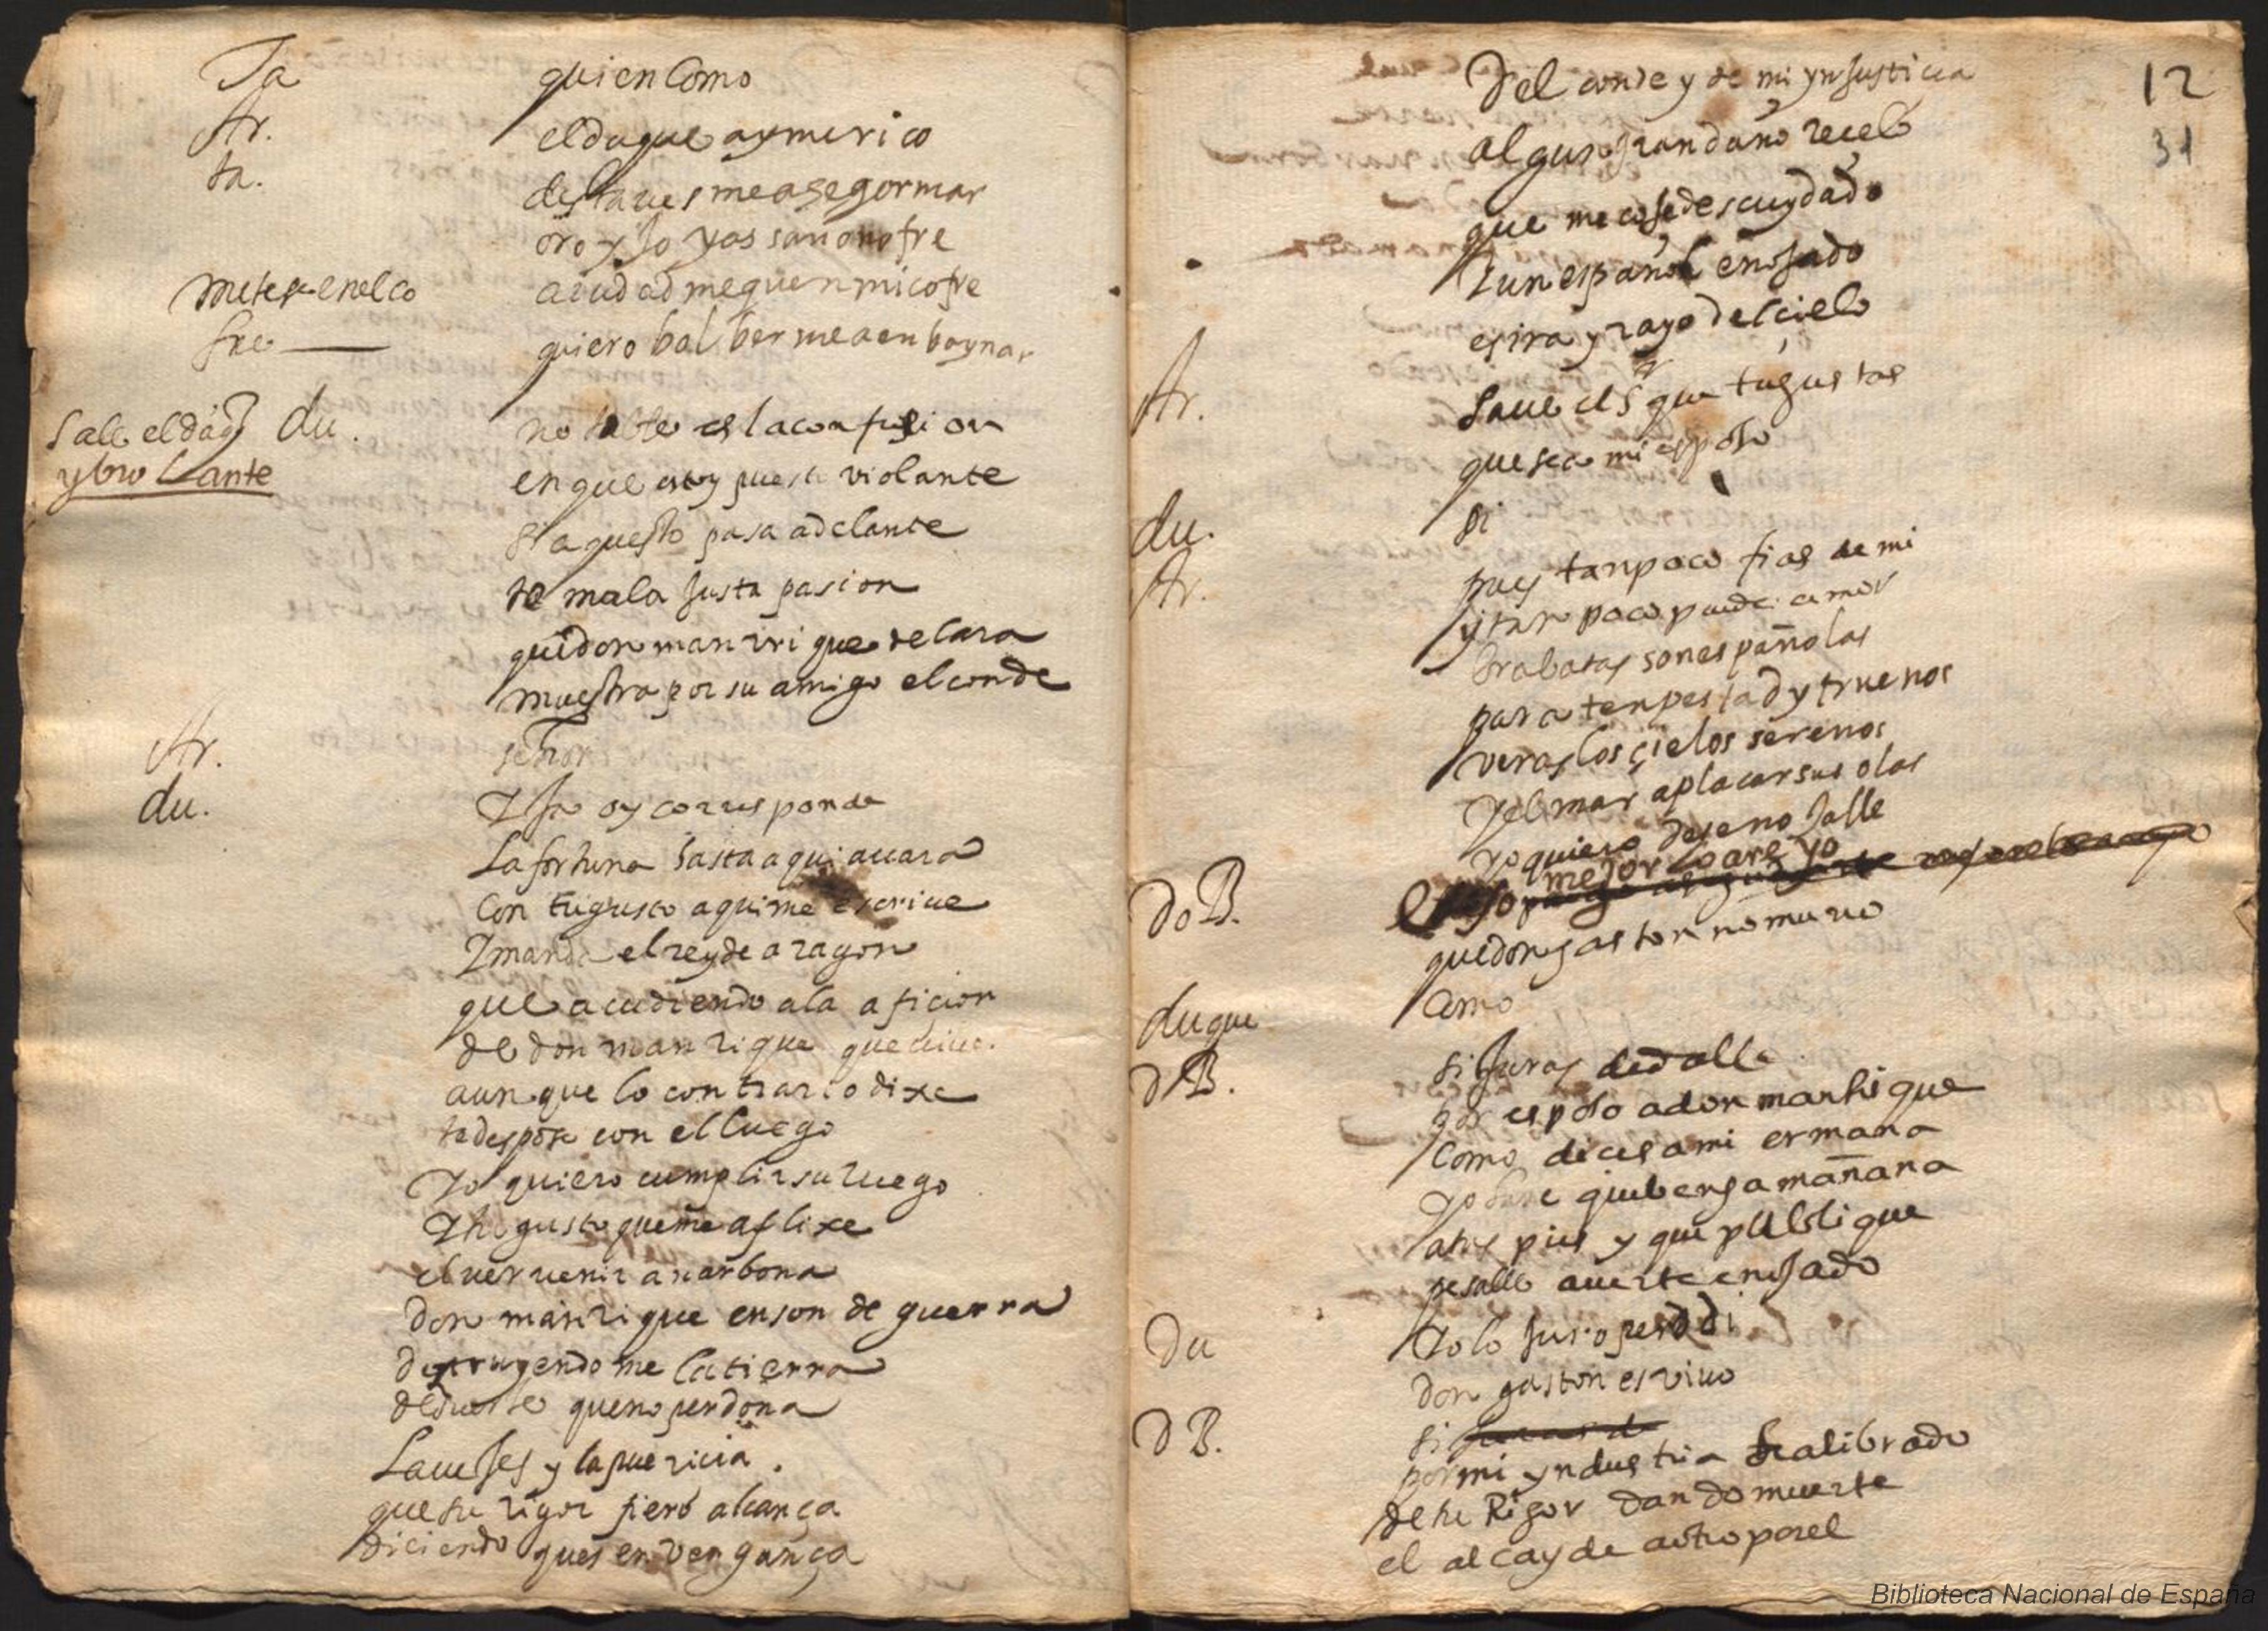 Ta quien Como
Ar. el duque aymerico
ta. desta ues me a se gormar
oro y so yas san onofre
metese en el co aiudad me que en mi cofre
fre quiero bolber me a en baynar
Sale el duq du. no table es la confusion
y bio Lante en que estoy puesto violante
si aquesto pasa adelante
mala justa pasion
que don manrrique de lara
muestra por su amigo el conde
Ar. señor
du. oy corresponde
La fortuna hasta aqui auara
Con tu gusto aqui me escriue
I manda el rey de aragon
que acudiendo a la aficion
de don manrique que uiue
aunque lo contrario dixe
te despose con el luego
Yo quiero cumplir su ruego
I tu gusto que me aflixe
el uer uenir a narbona
don manrique en son de guerra
destruyendo me la tierra
de suerte que no perdona
La ueses y la puericia
que su rigor fiero alcança
diciendo ques en vengança
12
31
Del conde y de mi ynjusticia
algun gran daño recelo
que me cojе descuydado
I un español enojado
es ira y rayo del cielo
Ar. saue el sr que tu gustas
que sea mi esposo
du. si
Ar. pues tan poco fias de mi
y tan poco puede amor
brabatas son españolas
para tenpestad y truenos
veras los çielos serenos
Y el mar aplacar sus olas
yo quiero
mejor lo are yo
Do B.
que don gaston no murio
duque Como
D B. si juras de dalle
por esposo a don manrique
Como dices a mi ermana
yo hare que benga mañana
a tus pies y que publique
pesalle auerte enojado
Du Yo lo juro
don gaston es viuo
D B. si
por mi yndustria se a librado
de tu Rigor dando muerte
el alcayde a otro por el
Biblioteca Nacional de España